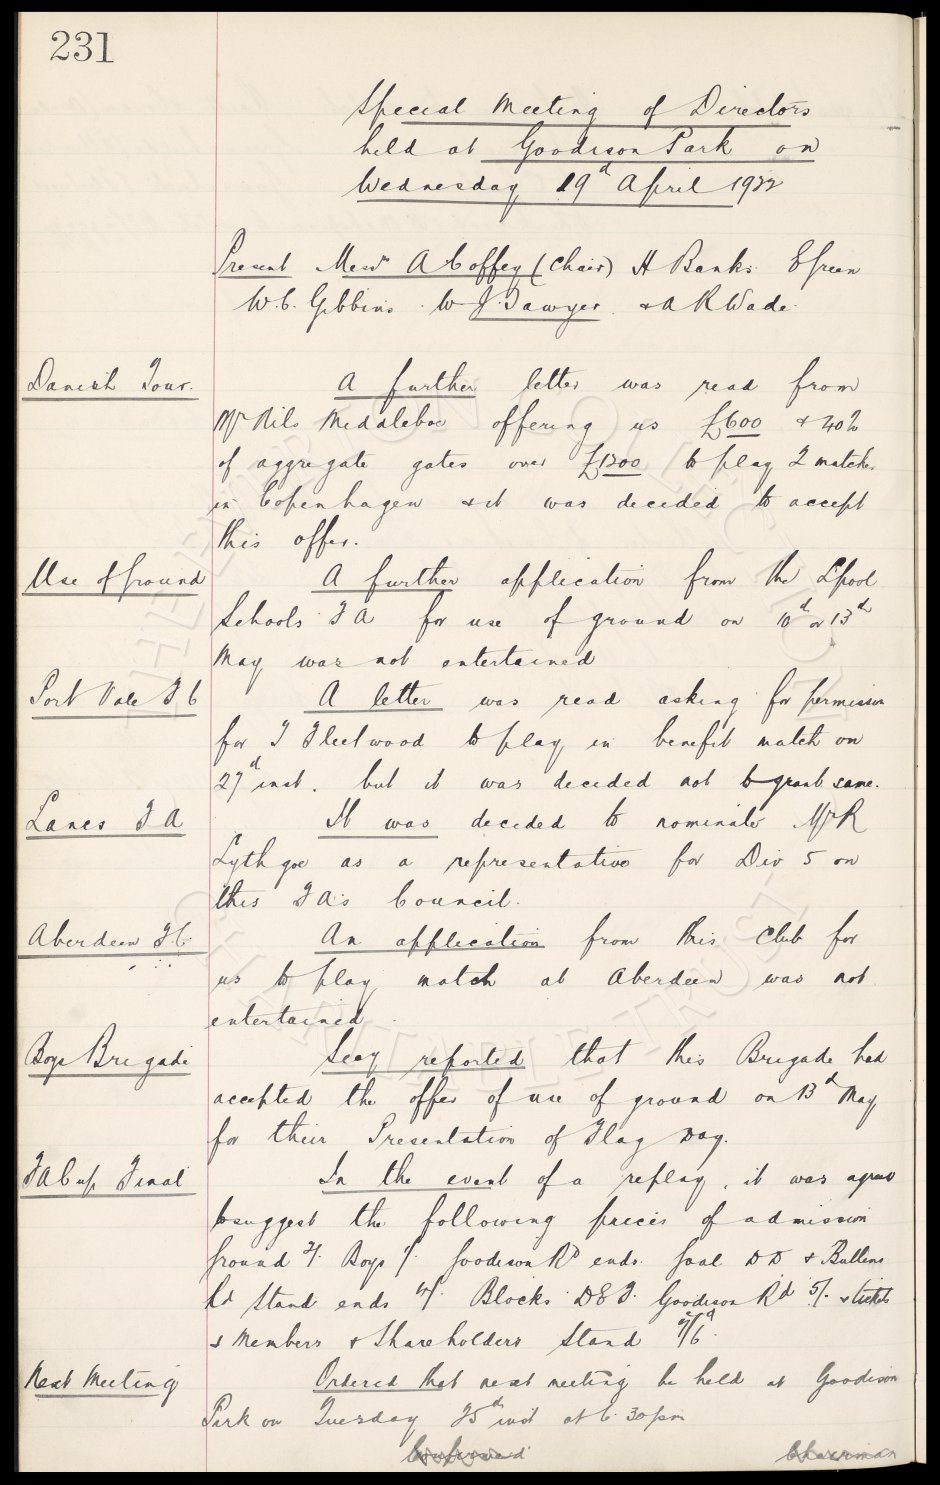 231
Special Meeting of Directors
held at Goodison Park on
Wednesday 19th April 1922
Present Messrs A Coffey (Chair) H Banks E Green
W. C. Gibbins W J Sawyer & A R Wade
Danish Tour. A further letter was read from
Mr Nils Middleboe offering us £600 & 40%
of aggregate gates over £1200 to play 2 matches
in Copenhagen & it was decided to accept
this offer.
Use of Ground A further application from the L'pool
Schools F A for use of ground on 10th or 13th
May was not entertained
Port Vale F C A letter was read asking for permission
for T Fleetwood to play in benefit match on
27th inst. but it was decided not to grant same.
Lancs F A It was decided to nominate Mr R
Lythgoe as a representative for Div 5 on
this F A's Council.
Aberdeen F C. An application from this Club for
us to play match at Aberdeen was not
entertained.
Boys Brigade Secy reported that this Brigade had
accepted the offer of use of ground on 13th May
for their Presentation of Flag Day.
F A Cup Final In the event of a replay, it was agreed
to suggest the following prices of admission
Ground 2/- Boys 1/- Goodison Rd ends. Goal D D & Bullens
Rd Stand ends 4/- Blocks D E F. Goodison Rd 5/- & tickets
& Members & Shareholders Stand 7/6d.
Next Meeting Ordered that next meeting be held at Goodison
Park on Tuesday 25th inst at 6.30pm
Confirmed Chairman